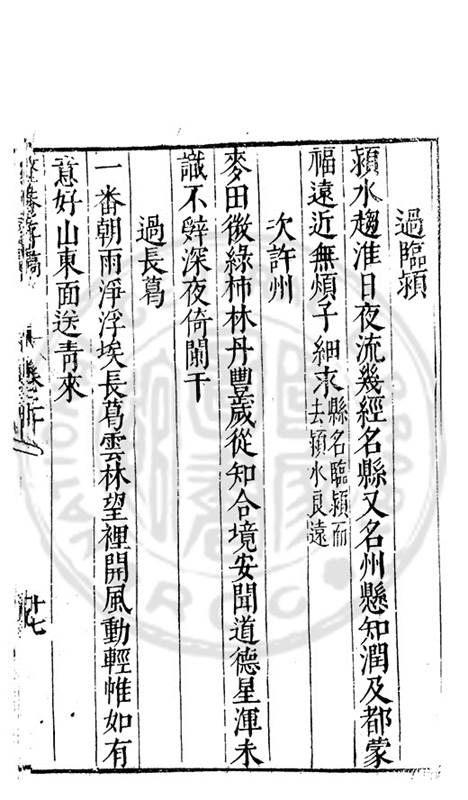 過臨潁
潁水趨淮日夜流幾經名縣又名州懸知潤及都蒙
福遠近無煩子細求縣名臨潁而
去潁水良遠
次許州
麥田微綠柿林丹豐歲從知合境安聞道德星渾未
識不辤深夜倚闌干
過長葛
一番朝雨淨浮埃長葛雲林望裡開風動輕帷如有
意好山東面送青來